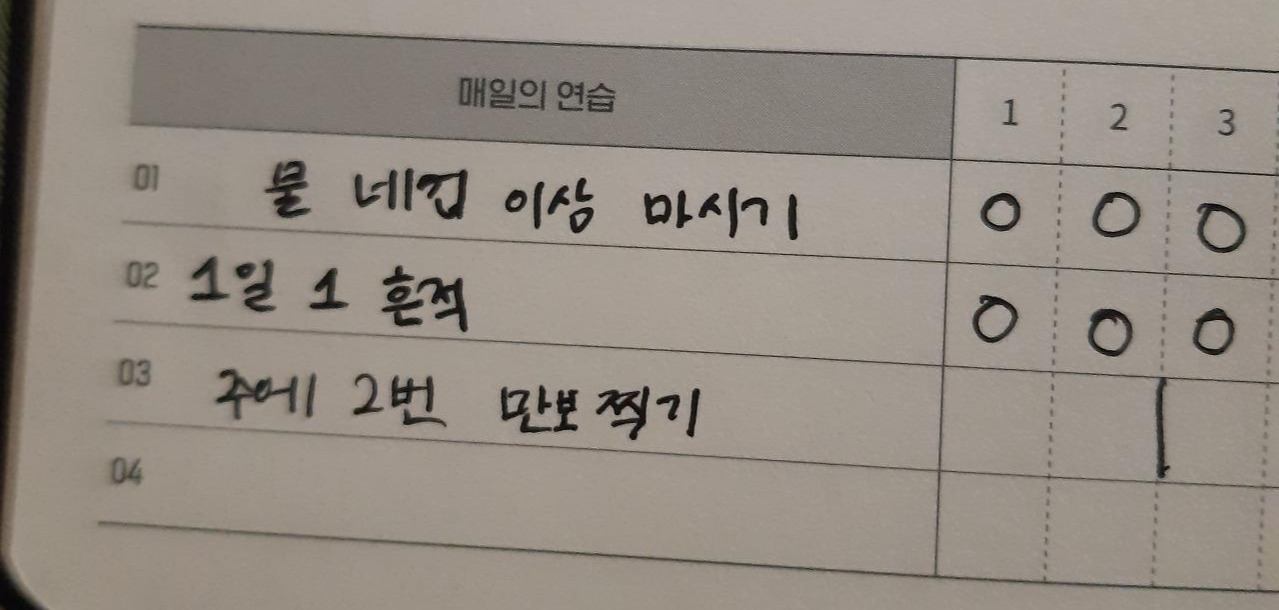 매일의 연습 1 2 3
01 물 네컵 이상 마시기 O O O
02 1일 1 흔적 O O O
03 주에 2번 만보 찍기
04